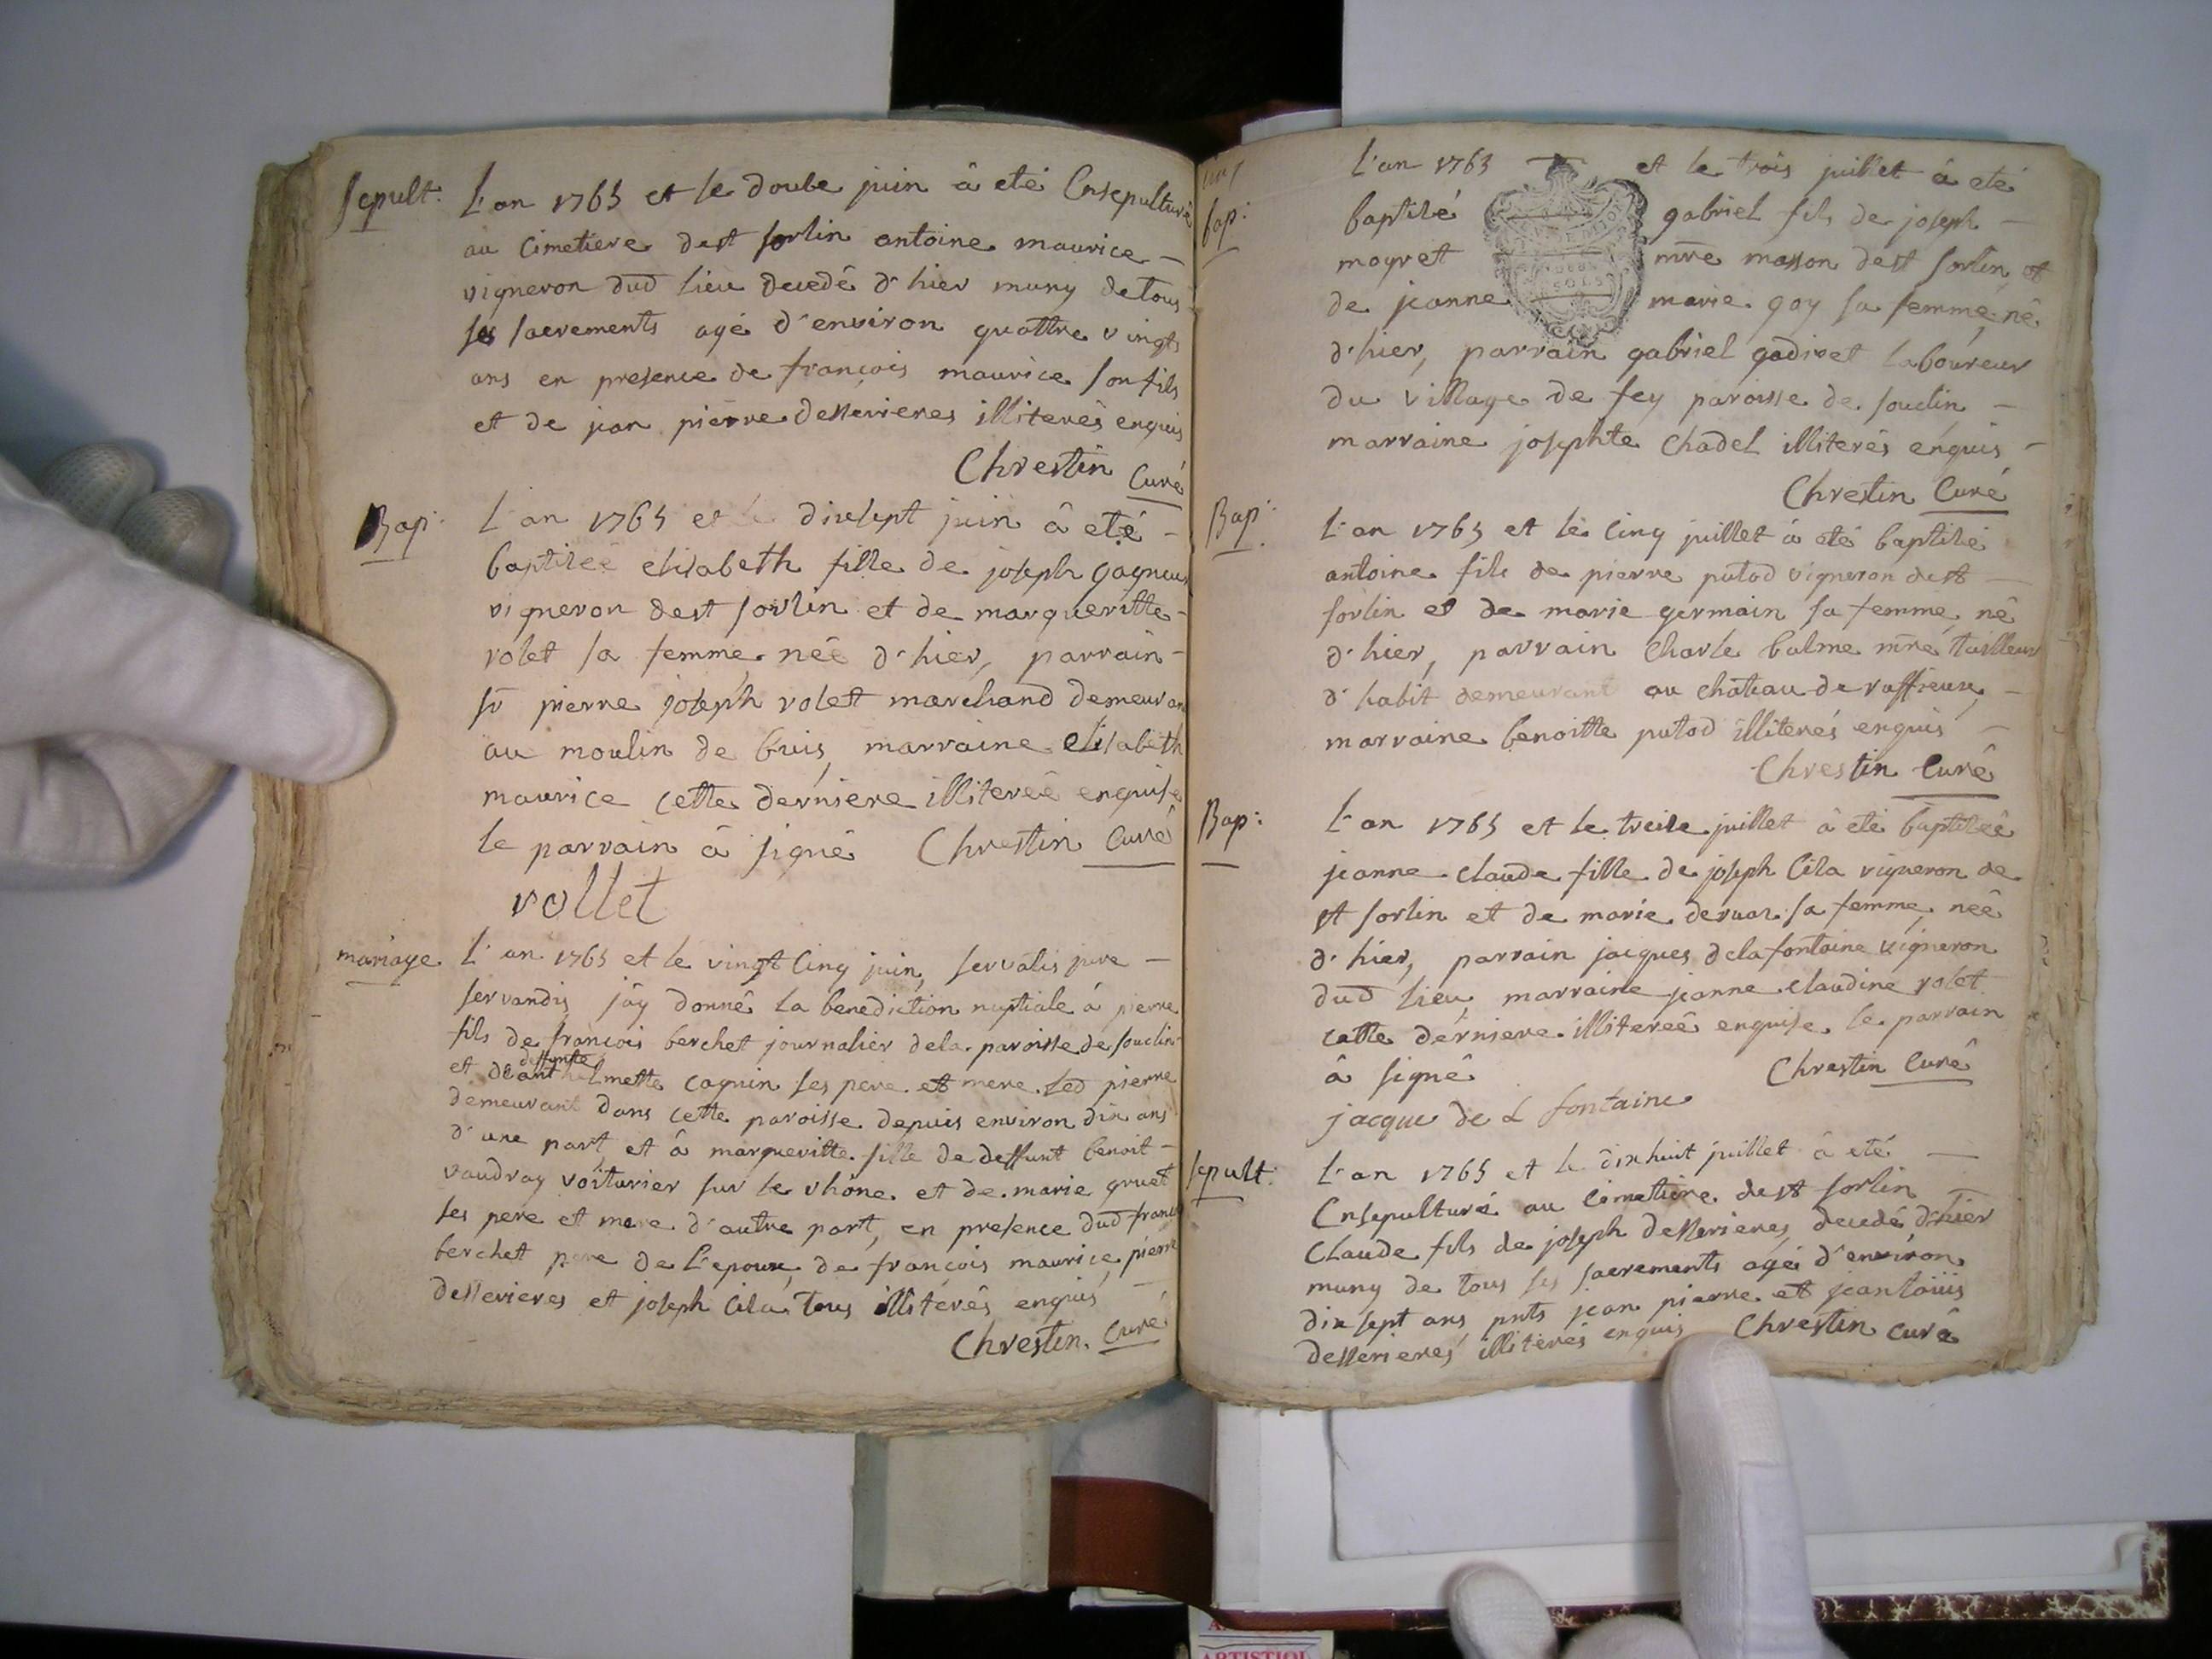 sepult: L'an 1765 et le douse juin â eté Ensepulturé
au cimetiere de st sorlin antoine maurice –
vigneron dud lieu decedé d'hier muny de tous
ses sacrements agé d'environ quattre vingts
ans en presence de françois maurice son fils
et de jean pierre desserieres illiterés enquis
Chrestin Curé
Bap: L'an 1765 et le disesept juin â eté –
baptiseé elisabeth fille de joseph gagneux
vigneron de st sorlin et de margueritte –
volet sa femme neé d'hier, parrain –
sr pierre joseph volet marchand demeurant
au moulin de buis, marraine elisabeth
maurice cette derniere illitereé enquise
le parrain â signé Chrestin Curé
vollet
mariage L'an 1765 et le vingt cinq juin, servatis jure –
servandis j'ây donné la benediction nuptiale â pierre
fils de françois berchet journalier de la paroisse de souclin
deffunte
et de anthelmette coquin ses pere et mere led pierre
demeurant dans cette paroisse depuis environ dix ans
d'une part, et â margueritte fille de deffunt benoit –
vaudray voiturier sur le rhône et de marie gruet
ses pere et mere d'autre part, en presence dud françois
berchet pere de l'epoux, de françois maurice, pierre
desserieres et joseph Cila tous illiterés enquis
Chrestin. Curé
bap: L'an 1765 et le trois juillet â eté
baptisé gabriel fils de joseph –
moyret mre masson de st sorlin et
de jeanne marie goy sa femme, né
d'hier, parrain gabriel godivet laboureur
du village de fey paroisse de souclin –
marraine josephte Chadel illiterés enquis –
Chrestin Curé
Bap: L'an 1765 et le cinq juillet â eté baptisé
antoine fils de pierre putod vigneron de st –
sorlin et de marie germain sa femme, né
d'hier, parrain Charle balme mre tailleur
d'habit demeurant au château de vaffrieux, –
marraine benoitte putod illiterés enquis –
Chrestin Curé
Bap: L'an 1765 et le treise juillet â eté baptiseé
jeanne claude fille de joseph Cila vigneron de
st sorlin et de marie sa femme, neé
d'hier, parrain jacques delafontaine vigneron
dud lieu, marraine jeanne claudine volet
cette derniere illitereé enquise le parrain
â signé Chrestin Curé
jacque de L fontaine
sepult: L'an 1765 et le dixhuit juillet â eté –
Ensepulturé au cimetiere de st sorlin –
Claude fils de joseph desserieres, decedé d'hier
muny de tous ses sacrements agé d'environ
dix sept ans pnts jean pierre et jean loüis
desserieres illiterés enquis Chrestin curé